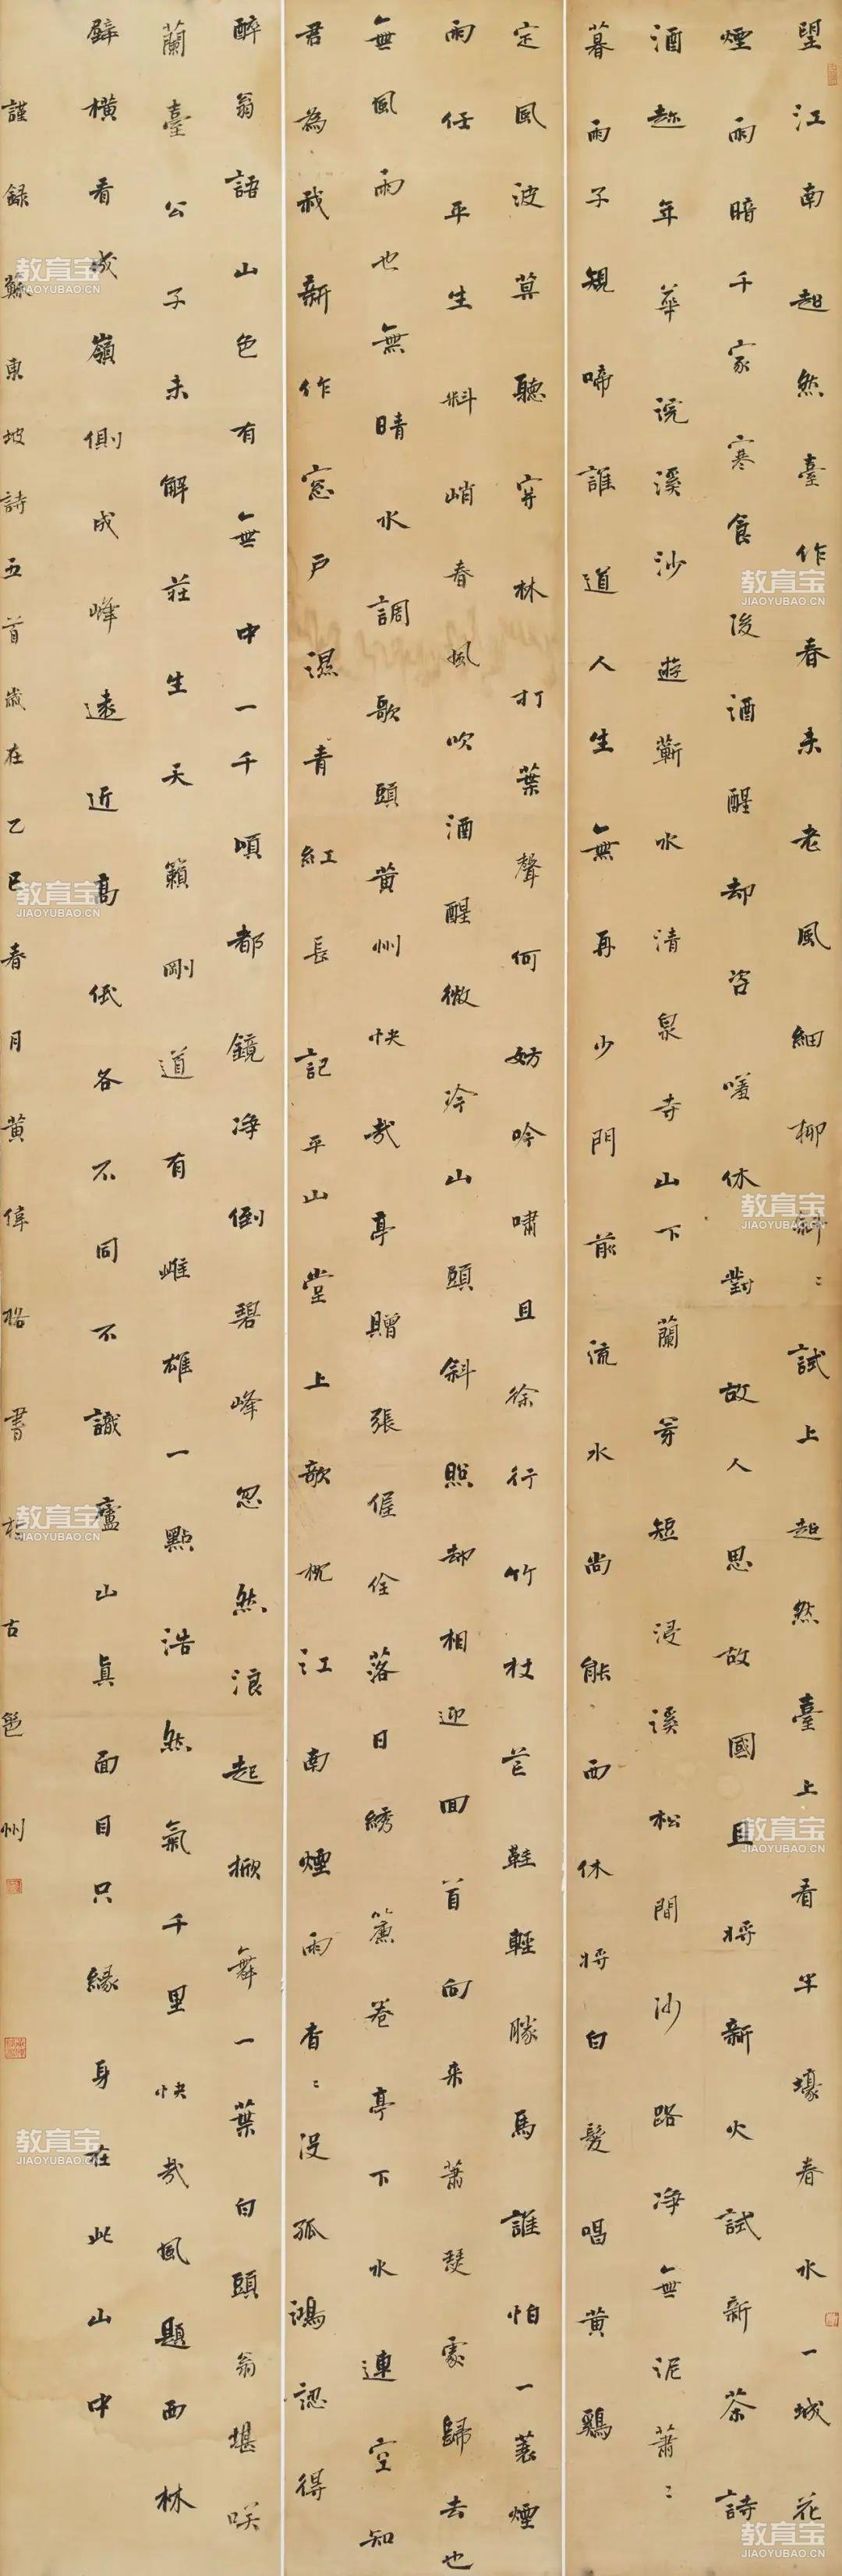 望江南超然臺作春未老風細柳斜〻試上超然臺上看半壕春水一城花
煙雨暗千家寒食後酒醒却咨嗟休對故人思故國且將新火試新茶詩
酒趁年華浣溪沙遊蘄水清泉寺山下蘭芽短浸溪松間沙路凈無泥蕭〻
暮雨子規啼誰道人生無再少門前流水尚能西休將白髮唱黄鷄
定風波莫聽穿林打葉聲何妨吟嘯且徐行竹杖芒鞋輕勝馬誰怕一蓑煙
雨任平生料峭春風吹酒醒微冷山頭斜照却相迎回首向来蕭瑟處歸去也
無風雨也無晴水調歌頭黄州快哉亭贈張偓佺落日綉簾卷亭下水連空知
君為我新作窓戶濕青紅長記平山堂上欹枕江南煙雨杳〻没孤鴻認得
醉翁語山色有無中一千頃都鏡凈倒碧峰忽然浪起掀舞一葉白頭翁堪咲
蘭臺公子未解莊生天籟剛道有雌雄一點浩然氣千里快哉風題西林
壁横看成嶺側成峰遠近高低各不同不識廬山真面目只緣身在此山中
謹録蘇東坡詩五首歲在乙巳春月黄偉格書於古邕州
教育宝
JIAOYUBAO.CN
教育宝
JIAOYUBAO.CN
教育宝
JIAOYUBAO.CN
教育宝
JIAOYUBAO.CN
教育宝
JIAOYUBAO.CN
教育宝
JIAOYUBAO.CN
教育宝
JIAOYUBAO.CN
教育宝
JIAOYUBAO.CN